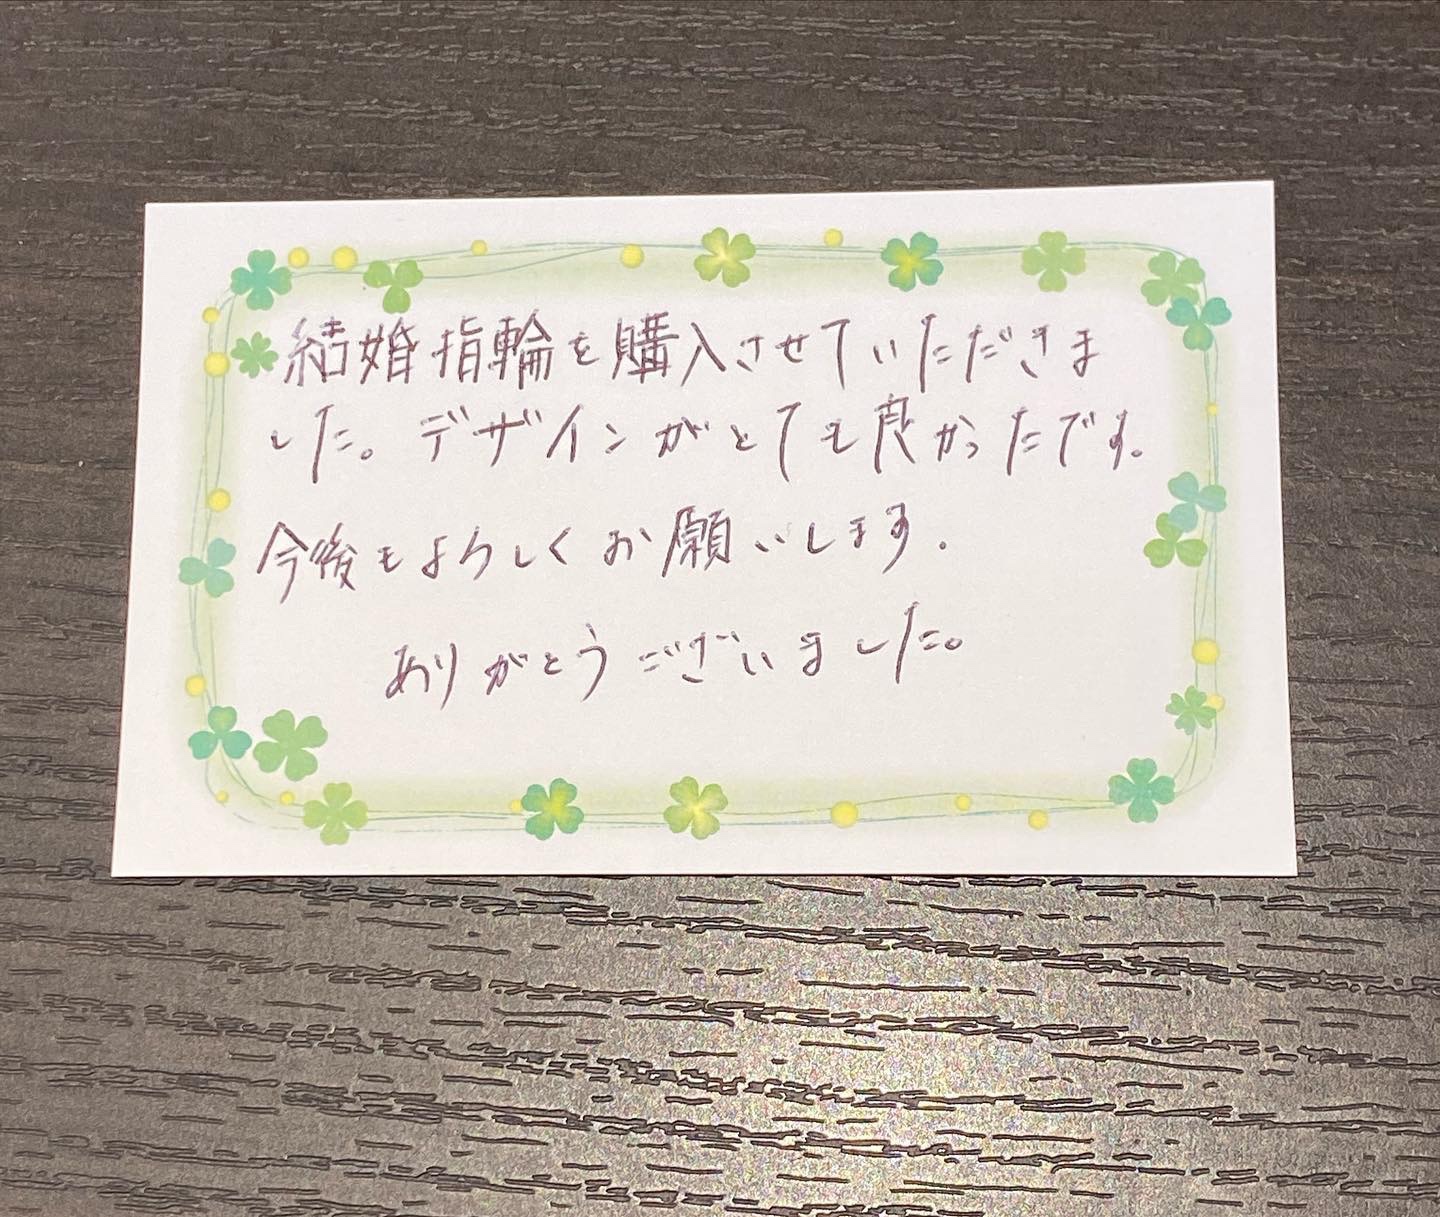 結婚指輪を購入させていただきま
した。デザインがとても良かったです。
今後もよろしくお願いします。
ありがとうございました。